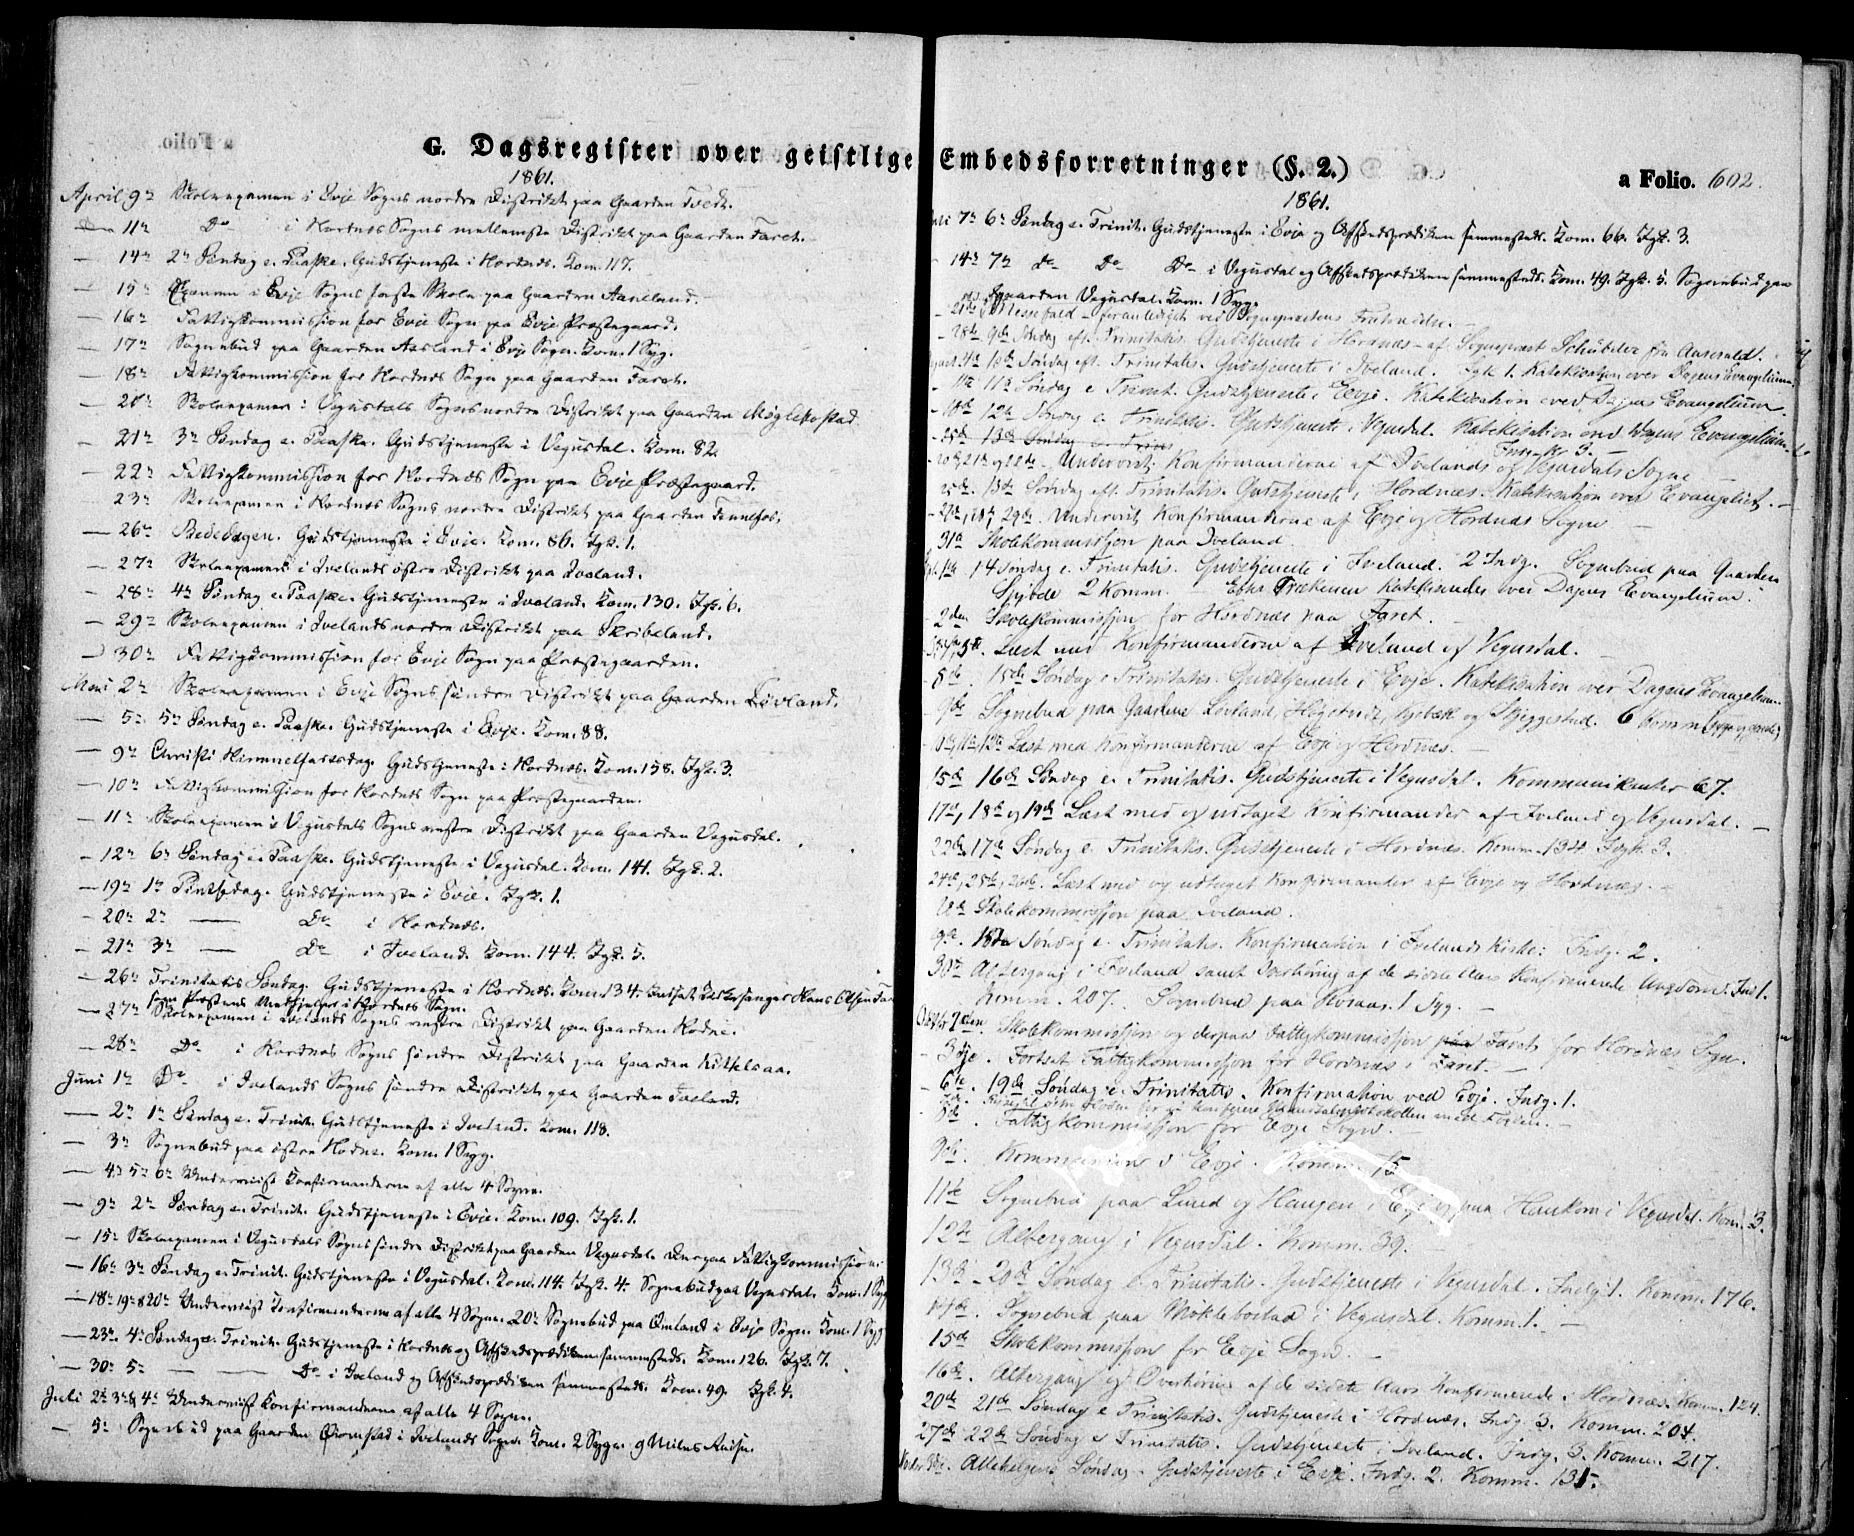 G. Dagsregister over geistlige Embedsforretninger (§. 2.)
a Folio. 602.
1861.
April 9de Skoleexamen i Evje Sogns nordre Distrikt paa Gaarden Tveit.
— 11te Do i Hordnes Sogns mellemste Distrikt paa Gaarden Faret.
— 14de 2den Søndag e. Paaske. Gudstjeneste i Hordnes. Kom. 117.
— 15de Examen i Evje Sogns faste Skole paa Gaarden Aaneland.
— 16de Fattigkommission for Evje Sogn paa Evje Præstegaard.
— 17de Sognebud paa Gaarden Aasland i Evje Sogn. Kom. 1 Syg.
— 18de Fattigkommission for Hordnes Sogn paa Gaarden Faret.
— 20de Skoleexamen i Vegusdals Sogns nordre Distrikt paa Gaarden Møglebostad
— 21de 3de Søndag e. Paaske. Gudstjeneste i Vegusdal. Kom. 82.
— 22de Fattigkommission for Hordnes Sogn paa Evje Præstegaard.
— 23de Skoleexamen i Hordnes Sogns nordre Distrikt paa Gaarden Fennefos.
— 26de Bededagen. Gudstjeneste i Evje. Kom. 86. Igk. 1.
— 27de Skoleexamen i Ivelands østre Distrikt paa Iveland.
— 28de 4de Søndag e. Paaske. Gudstjeneste i Iveland. Kom. 130. Igk. 6.
— 29de Skoleexamen i Ivelands nordre Distrikt paa Skribeland.
— 30te Fattigkommission for Evje Sogn paa Præstegaarden.
Mai 2den Skoleexamen i Evje Sogns søndre Distrikt paa Gaarden Løvland.
— 5te 5te Søndag e. Paaske. Gudstjeneste i Evje. Kom. 88.
— 9de Christi Himmelfartsdag. Gudstjeneste i Hordnes. Kom. 158. Igk. 3.
— 10de Fattigkommission for Hordnes Sogn paa Præstegaarden.
— 11te Skoleexamen i Vegusdals Sogns vestre Distrikt paa Gaarden Vegusdal.
— 12te 6te Søndag e. Paaske. Gudstjeneste i Vegusdal. Kom. 141. Igk. 2.
— 19de 1te Pintsedag. Gudstjeneste i Evje. Igk. 1.
— 20de 2den — Do i Hordnes.
— 21de 3de — Do i Iveland. Kom. 144. Igk. 5.
— 26de Trinitatis Søndag. Gudstjeneste i Hordnes. Kom. 134. Indsat Kirkesanger Hans Olsen
som Præstens Medhjelper i Hordnes Sogn.
— 27de Skoleexamen i Ivelands Sogns vestre Distrikt paa Gaarden Hodne.
— 28de Do i Hordnes Sogns søndre Distrikt paa Gaarden Kittelsaa.
Juni 1te Do i Ivelands Sogns søndre Distrikt paa Gaarden Tveland.
— 2den 1te Søndag e. Trinit. Gudstjeneste i Iveland. Kom. 118.
— 3de Sognebud paa østre Hodne. Kom. 1 Syg.
— 4de 5te 6te Underviist Konfirmanderne af alle 4 Sogne.
— 9de 2den Søndag e. Trinit. Gudstjeneste i Evje. Kom. 109. Igk. 1.
— 15de Skoleexamen i Vegusdals Sogns søndre Distrikt paa Gaarden Vegusdal. Derpaa Fattigkommission
— 16de 3de Søndag e. Trinit. Gudstjeneste i Vegusdal. Kom. 114. Igk. 4. Sognebud paa Vegusdal. Kom. 1 Syg
— 18de 19de & 20de Underviist Konfirmanderne af alle 4 Sogne. 20de Sognebud paa Omland i Evje Sogn. Kom. 1 Syg
— 23de 4de Søndag e. Trinit. Gudstjeneste i Hordnes og Afskedsprædiken sammesteds. Kom. 126. Igk. 7.
— 30te 5te — — Do i Iveland og Afskedsprædiken sammesteds. Kom. 49. Igk. 4.
Juli 2den 3de & 4de Underviist Konfirmanderne af alle 4 Sogne.
— 5te Sognebud paa Gaarden i Ivelands Sogn. Kom. 2 Syge. 9 Miles Reise.
1861.
Juli 7de 6te Søndag e. Trinit. Gudstjeneste i Evje og Afskedsprædiken sammesteds. Kom. 66. Igk. 3.
— 14de 7de do Do Do i Vegusdal og Afskedsprædiken sammesteds. Kom. 49. Igk. 5. Sognebud paa
Gaarden Vegusdal. Kom. 1 Syg.
— 21de Messefald — foranlediget ved Sognepræstens Fratrædelse.
— 28de 9de Søndag eft. Trinitatis. Gudstjeneste i Hordnes — af Sognepræst Schübeler fra Aaseral.
August 4de 10de Søndag eft. Trinitatis. Gudstjeneste i Iveland. Igk 1. Katekisation over Dagens Evangelium.
— 11te 11te Søndag e Trinit. Gudstjeneste i Evje. Katekisation over Dagens Evangelium.
— 18de 12te Søndag e. Trinitatis. Gudstjeneste i Vegusdal. Katekisation over Dagens Evangelium.
— 25de 13de Søndag e. Trini Indg. 3.
— 20de, 21de og 22de Underviist Konfirmanderne af Ivelands og Vegusdals Sogne
25de. 13de Søndag eft. Trinitatis. Gudstjeneste i Hordnæs. Katekisation over Evangeliet.
— 27de, 28de, 29de. Underviist Konfirmanderne af Evje og Hordnæs Sogne
31te Skolekommission paa Iveland.
1te 14 Søndag e. Trinitatis. Gudstjeneste i Iveland. 2 Indg. Sognebud paa Gaarden
2 Komm. Efter Prækenen Katekiseredes over Dagens Evangelium.
2den Skolekommission for Hordnæs paa Faret.
5te Læst med Konfirmanderne af Iveland og Vegusdal.
8de 15de Søndag e Trinitatis. Gudstjeneste i Evje. Katekisation over Dagens Evangelium.
9de Sognebud paa Gaardene Løvland, Høgetveit, Kjebæk og Skjeggestad. 6 Komm.
10de, 11te, 12te Læst med Konfirmanderne af Evje og Hordnæs.
15de 16de Søndag e. Trinitatis. Gudstjeneste i Vegusdal. Kommunikanter 67.
17de, 18de og 19de Læst med og udtaget Konfirmander af Iveland og Vegusdal.
22de 17de Søndag e. Trinitatis. Gudstjeneste i Hordnæs. Komm. 134 Indgk. 3.
24de, 25de, 26de. Læst med og udtaget Konfirmander af Evje og Hordnæs.
Skolekommission paa Iveland.
29de. 18de Søndag e. Trinitatis. Konfirmation i Ivelands Kirke. Indg. 2.
30te Altergang i Iveland samt Overhøring af de sidste Aars Konfirmerede Ungdom. Ind 1.
Komm. 207. Sognebud paa 1 Syg.
October 2den. Skolekommission og derpaa Fattigkommission paa Faret for Hordnæs Sogn.
— 3die. Fortsat Fattigkommission for Hordnæs i Faret.
— 6te. 19de Søndag e. Trinitatis. Konfirmation ved Evje. Indg. 1.
8de. Fattigkommission for Evje Sogn.
9de. Kommunion i Evje. Komm. 75
11te Sognebud paa Lund og Haugen i Evje og paa Haukom i Vegusdal. Kom. 3.
12te Altergang i Vegusdal. Komm. 39.
13de 20de Søndag e. Trinitatis. Gudstjeneste i Vegusdal. Indg. 1. Komm. 176.
14de. Sognebud paa Møklebostad i Vegusdal. Komm. 1.
15de Skolekommission for Evje Sogn.
16de. Altergang og Overhøring af de sidste Aars Konfirmerede i Hordnæs. Komm. 124.
20de 21de Søndag e Trinitatis. Gudstjeneste i Hordnæs. Indg. 3. Komm. 204.
27de 22de Søndag e Trinitatis. Gudstjeneste i Iveland. Indg. 3. Komm. 217.
Novbr 3die. Allehelgens Søndag. Gudstjeneste i Evje. Indg. 2. Komm. 131.